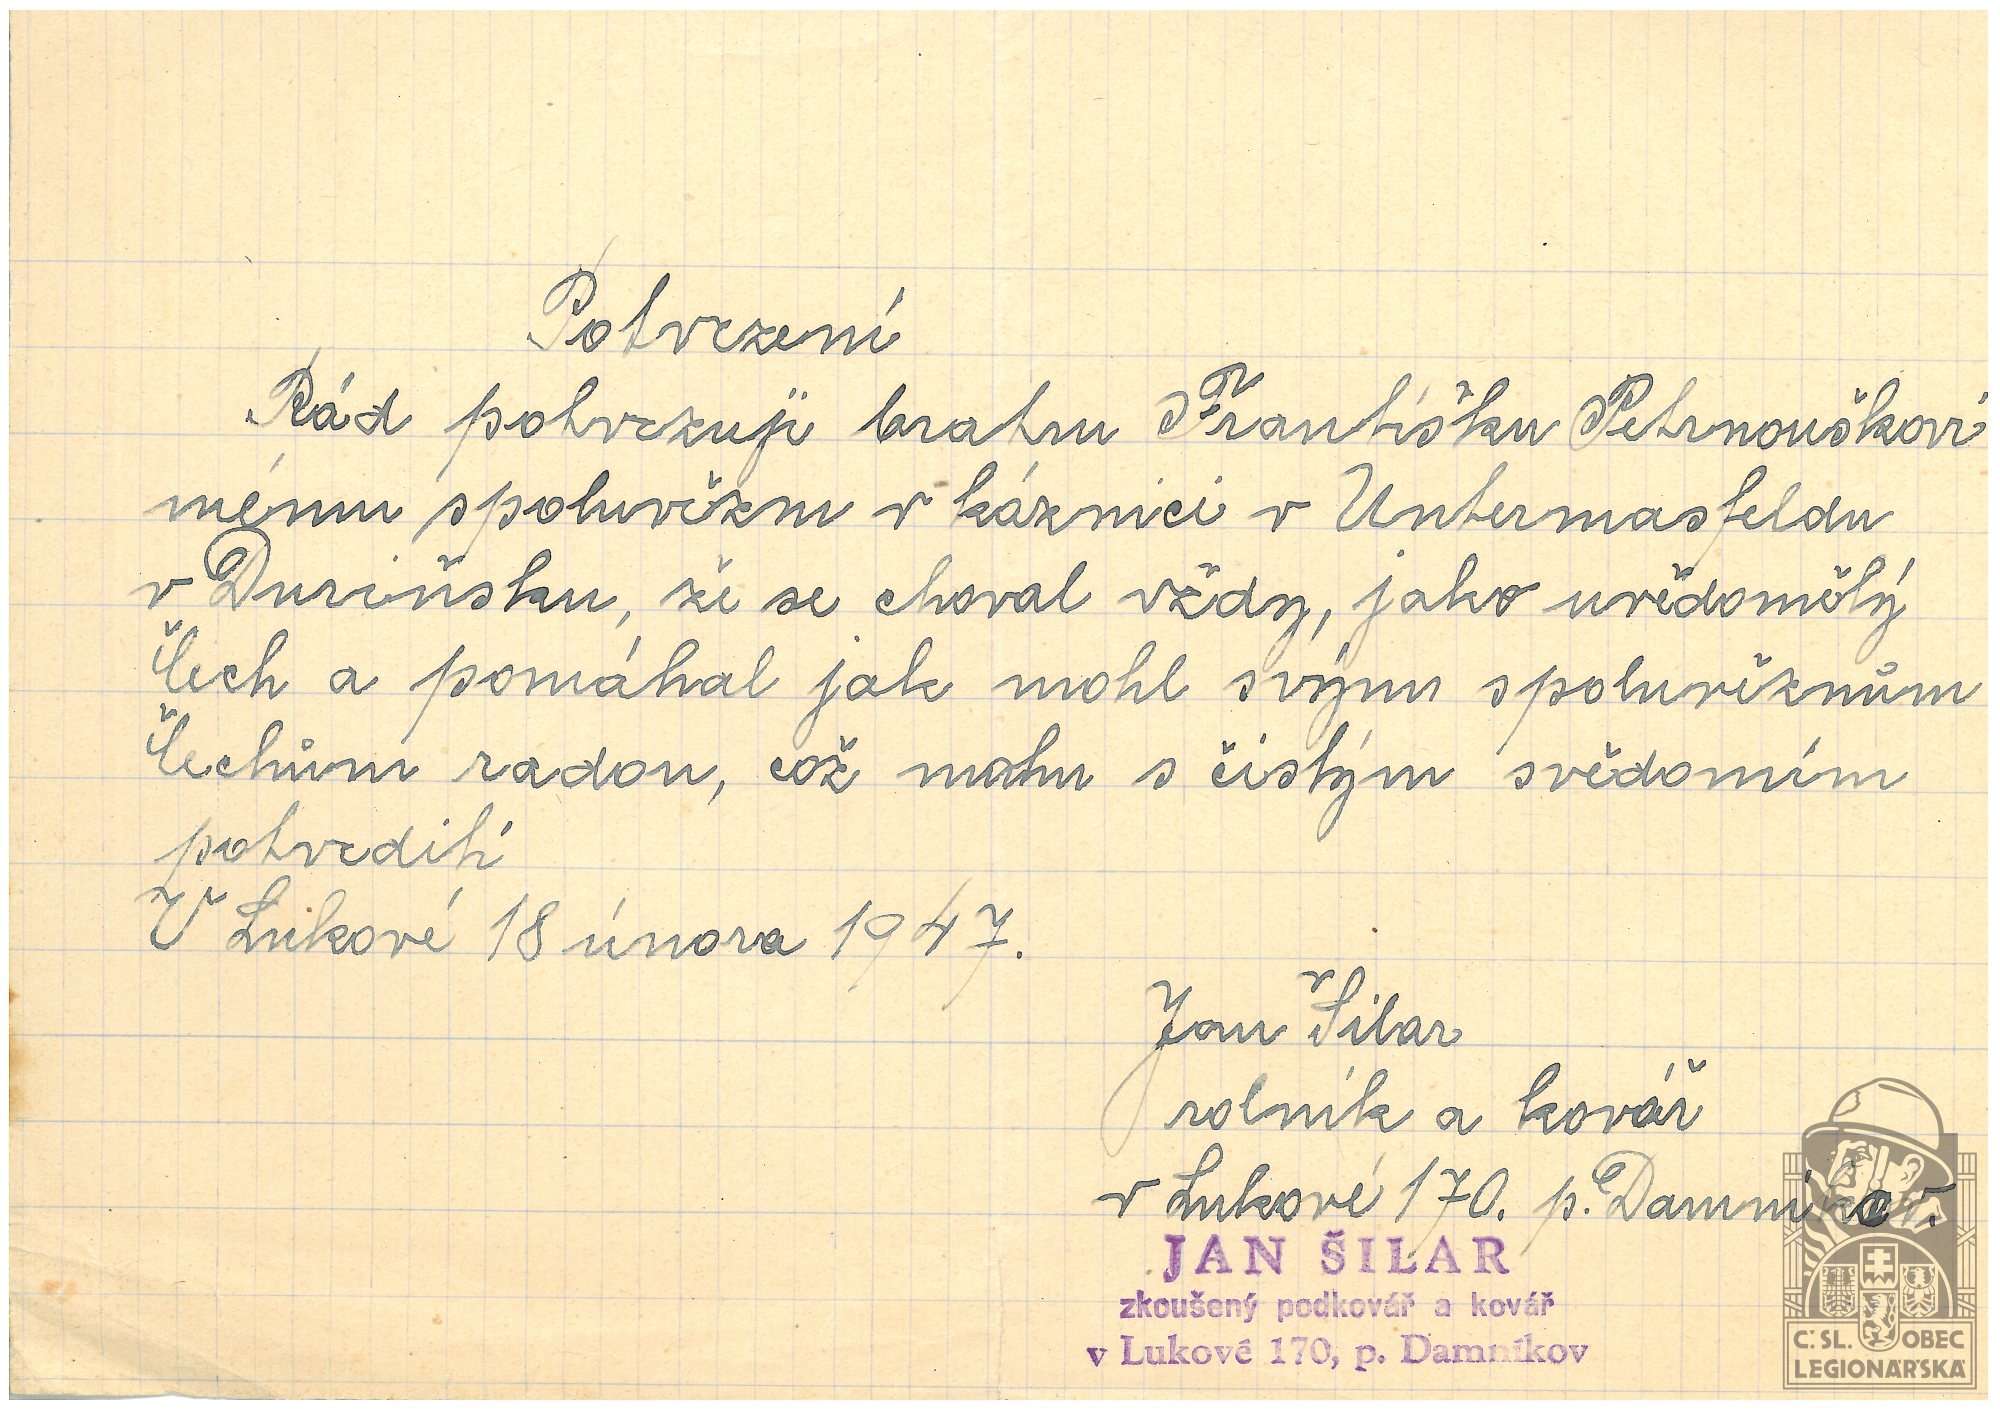 Potvrzení
Rád potvrzuji bratru Františku Petrnouškovi
mému spoluvězni v káznici v Untermasfeldu
v Duriňsku, že se choval vždy, jako uvědomělý
Čech a pomáhal jak mohl svým spoluvězňům
Čechům radou, což mohu s čistým svědomím
potvrditi
V Lukové 18 února 1947.
Jan Šilar
rolník a kovář
v Lukové 170. p. Damníkov.
JAN ŠILAR
zkoušený podkovář a kovář
v Lukové 170, p. Damníkov
Č.SL. OBEC
LEGIONÁŘSKÁ